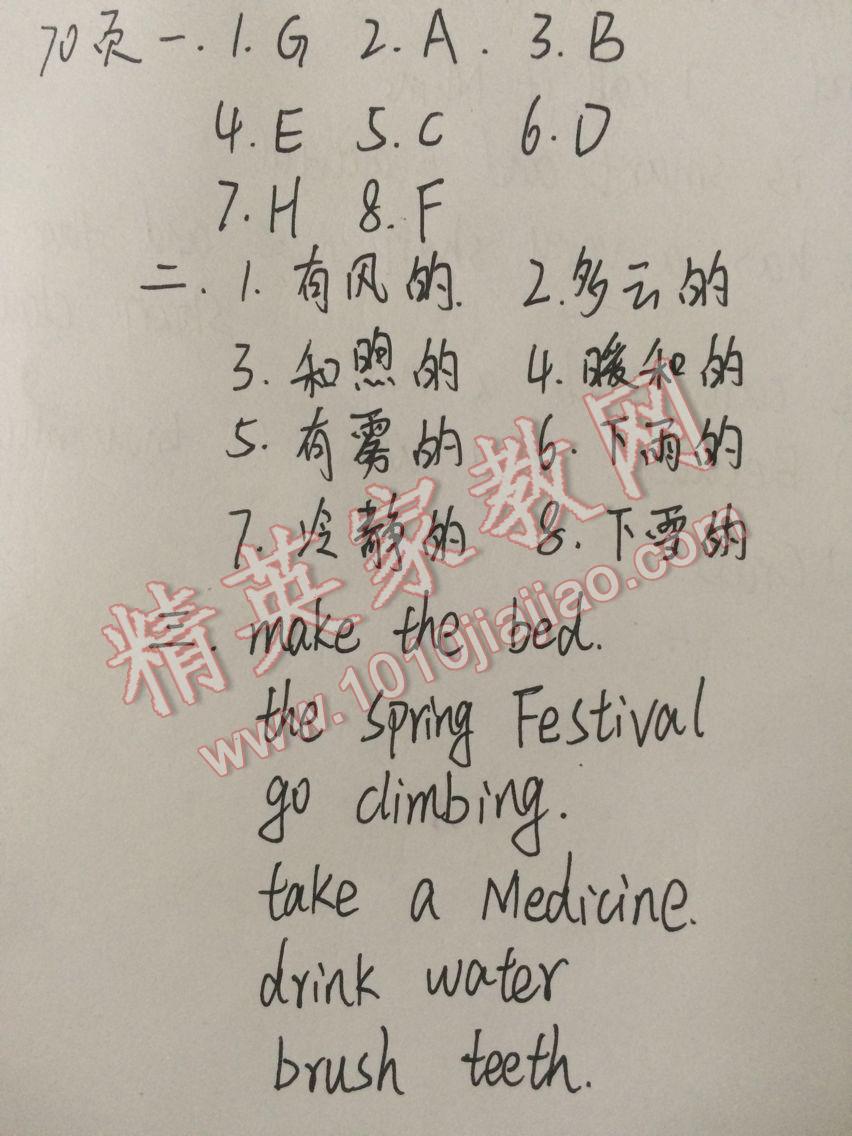 70页一.1.G 2.A. 3.B
4.E 5.C 6.D
7.H 8.F
二.1.有风的. 2.多云的
3.和煦的 4.暖和的
5.有雾的 6.下雨的
7.冷静的 8.下雪的
三.make the bed.
the spring Festival
go climbing.
take a Medicine.
drink water
brush teeth.
精英家教网
www.1010jiajiao.com